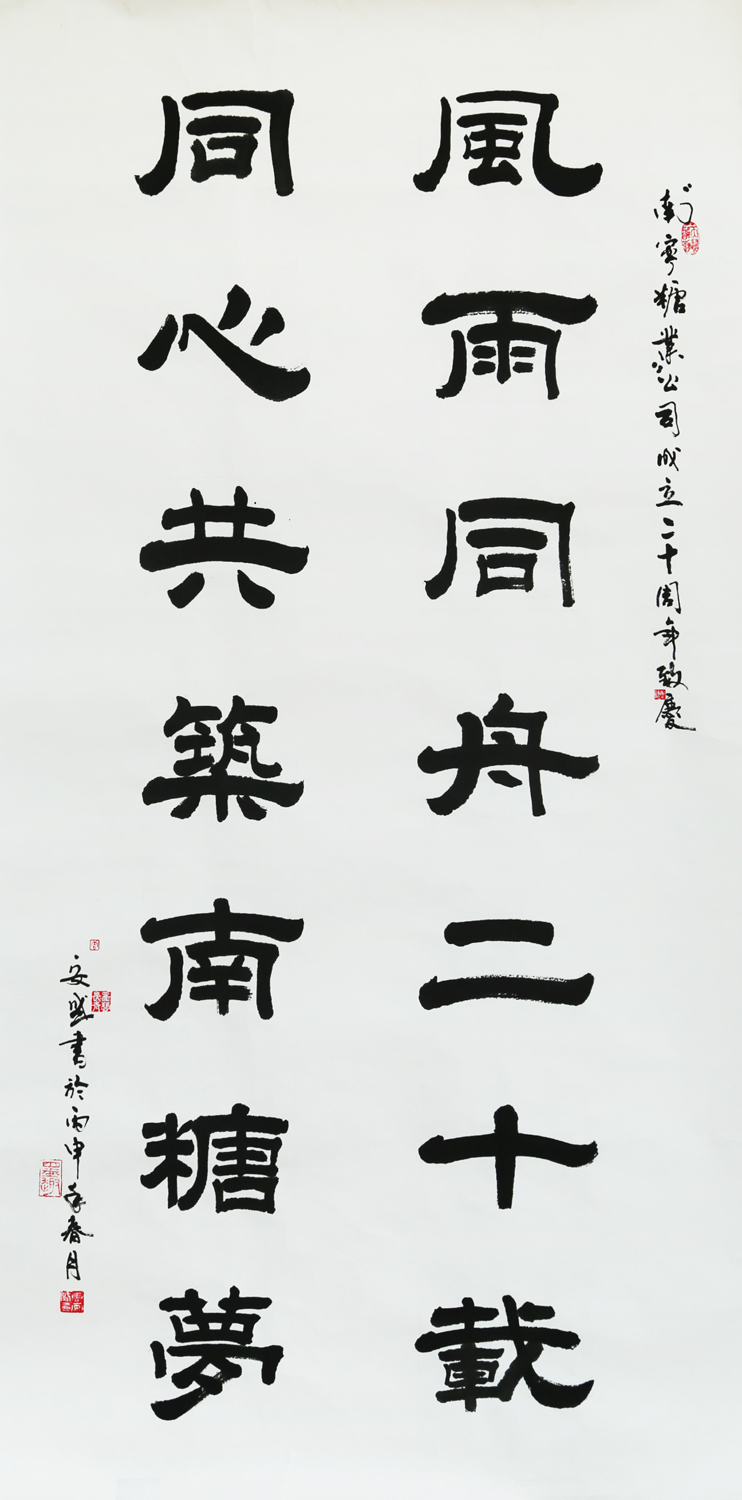 为南宁糖業公司成立二十周年致慶
風雨同舟二十載
同心共築南糖夢
安盛書於丙申年春月